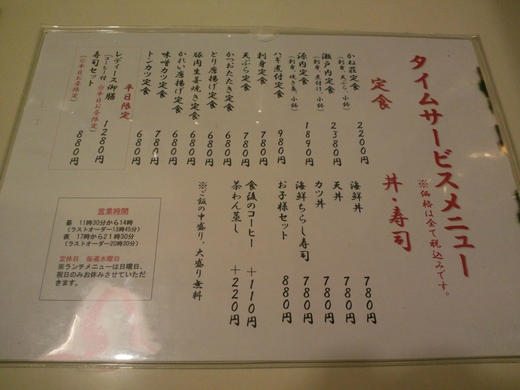 タイムサービスメニュー
※価格は全て税込みです。
定食
かね荘定食 2200円
(刺身、天ぷら、小鉢)
瀬戸内定食 2380円
(刺身、煮付け、小鉢)
源内定食 1890円
(刺身、焼き魚、小鉢)
ハギ煮付定食 980円
刺身定食 780円
天ぷら定食 780円
かつおたたき定食 680円
とり唐揚げ定食 680円
豚肉生姜焼き定食 680円
かれい唐揚げ定食 680円
味噌カツ定食 780円
トンカツ定食 680円
平日限定
レディース御膳 1280円
(コーヒー付 ※平日お昼限定)
寿司セット 880円
(※平日お昼限定)
丼・寿司
海鮮丼 780円
天丼 780円
カツ丼 780円
海鮮ちらし寿司 780円
お子様セット 880円
食後のコーヒー +110円
茶わん蒸し +220円
※ご飯の中盛り、大盛り無料
営業時間
昼 11時30分から14時
(ラストオーダー13時45分)
夜 17時から21時30分
(ラストオーダー20時30分)
定休日 毎週水曜日
※ランチメニューは日曜日、
祝日のみお休みさせていた
だきます。